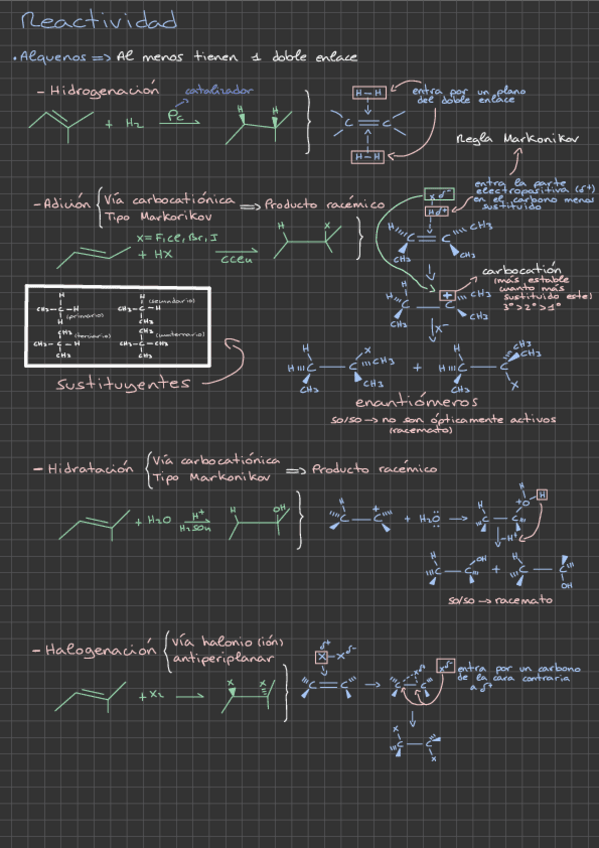 Reactividad
• Alquenos => Al menos tienen 1 doble enlace
- Hidrogenación
catalizador
+ H₂
Pc
H H
H-H
C = C
H-H
entra por un plano
del doble enlace
Regla Markonikov
- Adición { Vía carbocatiónica
Tipo Markorikov
=> Producto racémico
X = F, Cl, Br, I
+ HX
CCl4
H X
X δ⁻
H δ⁺
entra la parte
electropositiva (δ⁺)
en el carbono menos
sustituido
H CH₃
C = C
CH₃ CH₃
carbocatión
(más estable
cuanto más
sustituido este)
3º > 2º > 1º
H + CH₃
H C — C
CH₃ CH₃
X⁻
H
CH₃-C-H
H
(primario)
H
CH₃-C-H
CH₃
(secundario)
H
CH₃-C-CH₃
CH₃
(terciario)
CH₃
CH₃-C-CH₃
CH₃
(cuaternario)
sustituyentes
H X
H C — C CH₃
CH₃ CH₃
+
H CH₃
H C — C CH₃
CH₃ X
enantiómeros
50/50 → no son ópticamente activos
(racemato)
- Hidratación { Vía carbocatiónica
Tipo Markonikov
=> Producto racémico
+ H₂O
H⁺
H₂SO₄
H OH
C — C⁺ + H₂O →
H
H O⁺ H
C — C
-H⁺
H OH
C — C
+
H
C — C
OH
50/50 → racemato
- Halogenación { Vía halonio (ión)
antiperiplanar
+ X₂
X X
δ⁺
X - X δ⁻
C = C
→
δ⁺
C C
X δ⁻
entra por un carbono
de la cara contraria
a δ⁺
X
C — C
X